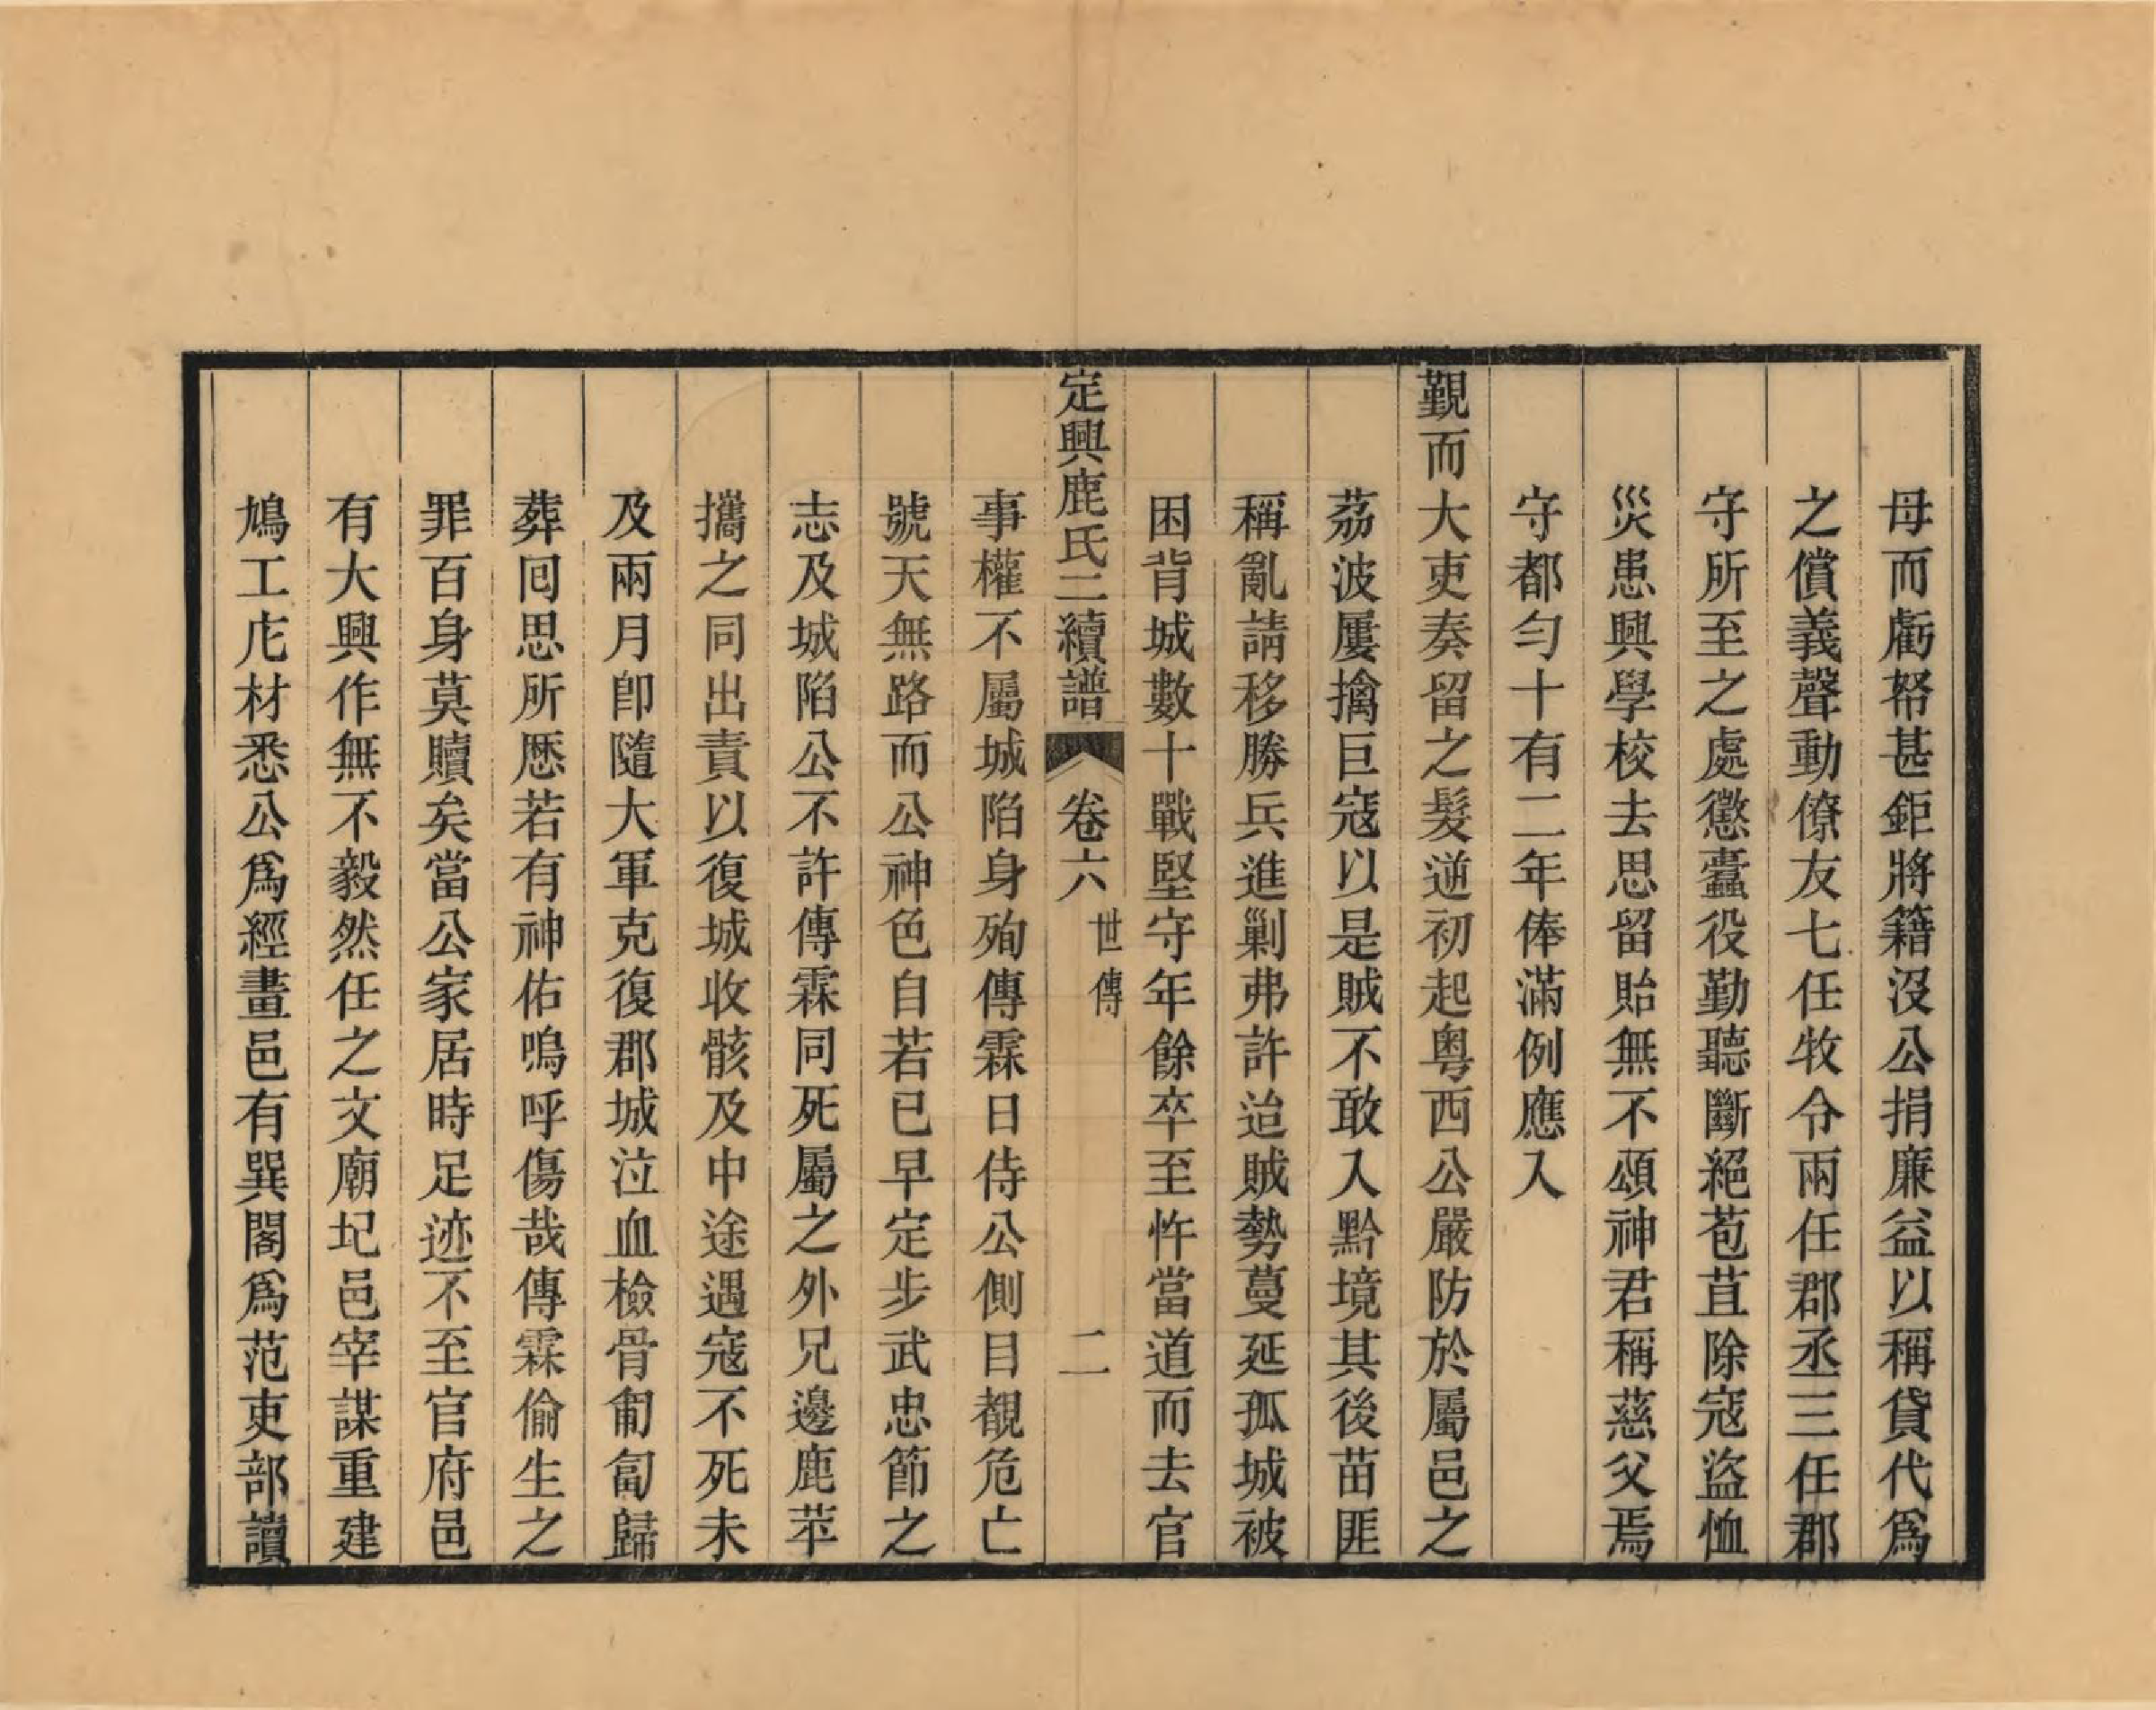 母而虧帑甚鉅將籍沒公捐廉益以稱貸代爲
之償義聲動僚友七任牧令兩任郡丞三任郡
守所至之處懲蠹役勤聽斷絕苞苴除寇盜恤
災患興學校去思留貽無不頌神君稱慈父焉
守都勻十有二年俸滿例應入
覲而大吏奏留之髮逆初起粵西公嚴防於屬邑之
荔波屢擒巨寇以是賊不敢入黔境其後苗匪
稱亂請移勝兵進剿弗許迨賊勢蔓延孤城被
困背城數十戰堅守年餘卒至忤當道而去官
定興鹿氏二續譜 卷六 世傳 二
事權不屬城陷身殉傳霖日侍公側目覩危亡
號天無路而公神色自若已早定步武忠節之
志及城陷公不許傳霖同死屬之外兄邊鹿苹
攜之同出責以復城收骸及中途遇寇不死未
及兩月卽隨大軍克復郡城泣血檢骨匍匐歸
葬囘思所歷若有神佑嗚呼傷哉傳霖偷生之
罪百身莫贖矣當公家居時足迹不至官府邑
有大興作無不毅然任之文廟圮邑宰謀重建
鳩工庀材悉公爲經畫邑有巽閣爲范吏部讀